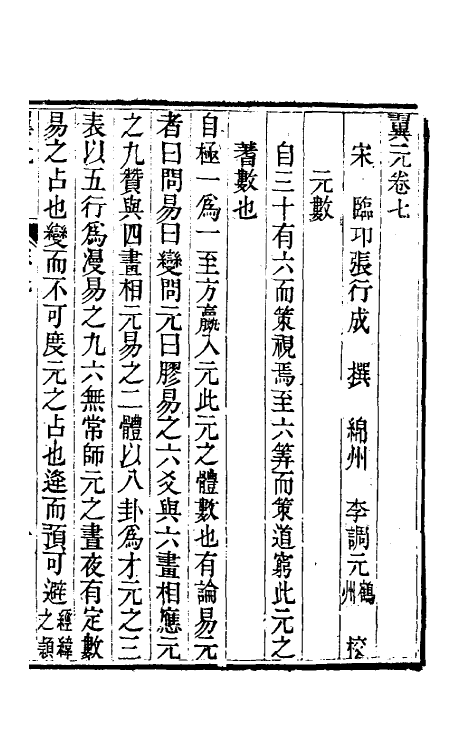 翼元卷七
宋 臨邛張行成 撰 綿州 李調元鶴州 校
元數
自三十有六而策視焉至六筭而策道窮此元之
蓍數也
自極一為一至方羸入元此元之體數也有論易元
者曰問易曰變問元曰膠易之六爻與六畫相應元
之九贊與四畫相元易之二體以八卦為才元之三
表以五行為漫易之九六無常師元之晝夜有定數
易之占也變而不可度元之占也逢而預可避經緯之類